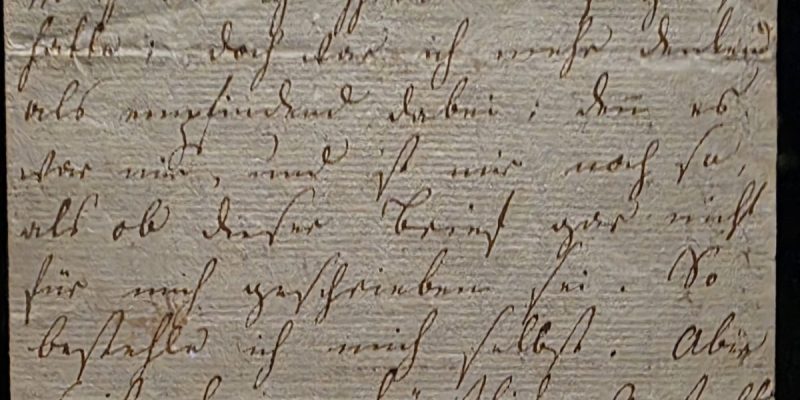 hatte; doch war ich mehr denkend
als empfindend dabei; den̅ es
war mir, und ist mir noch so,
als ob dieser Brief gar nicht
für mich geschrieben sei. So
bestehle ich mich selbst. Aber